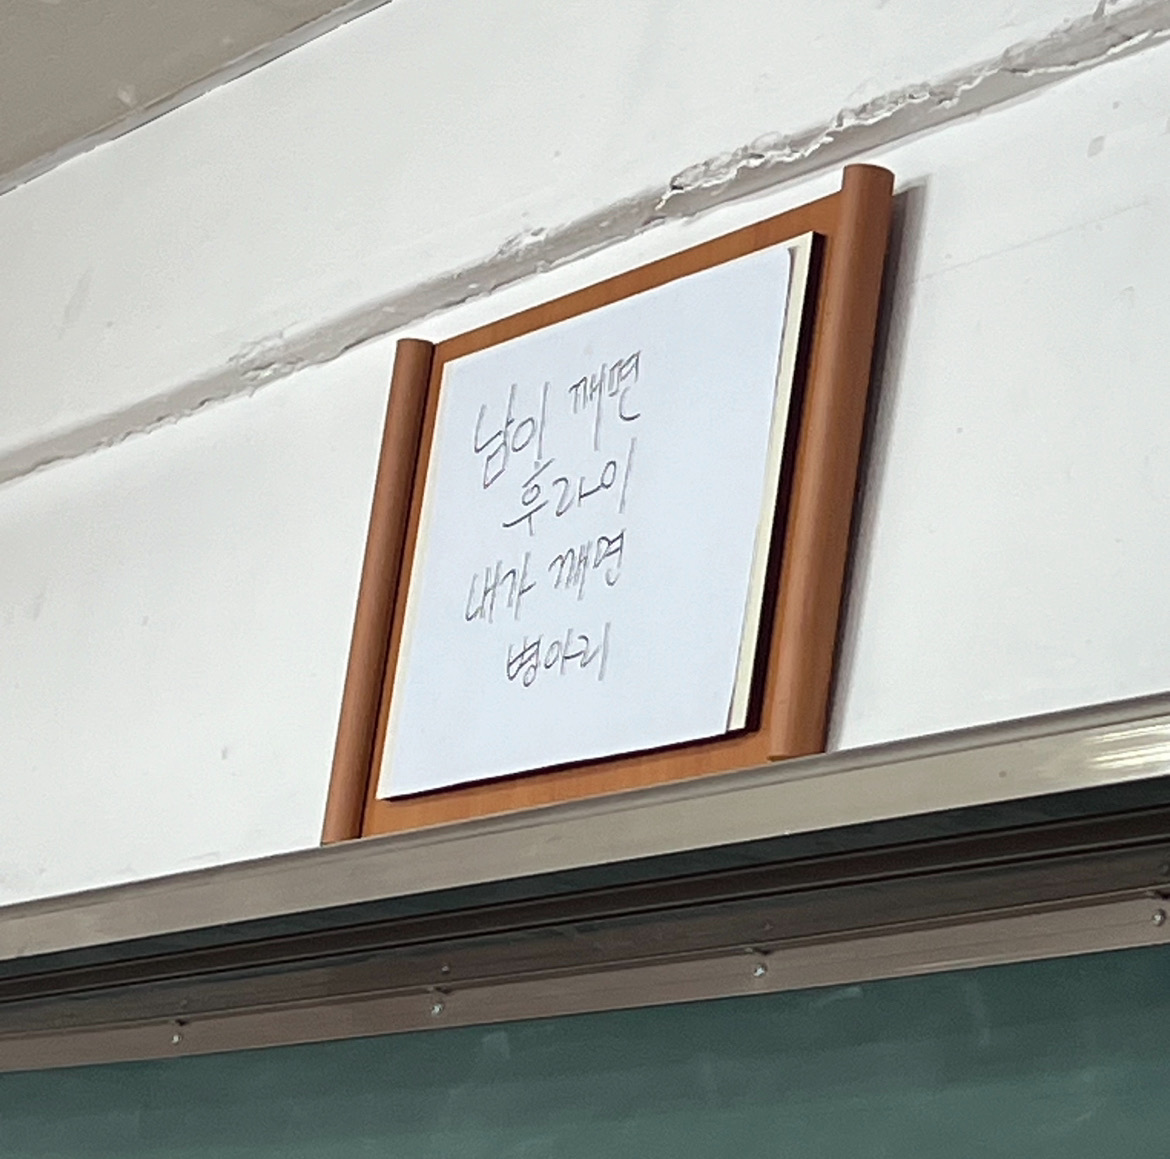 남이 깨면
후라이
내가 깨면
병아리